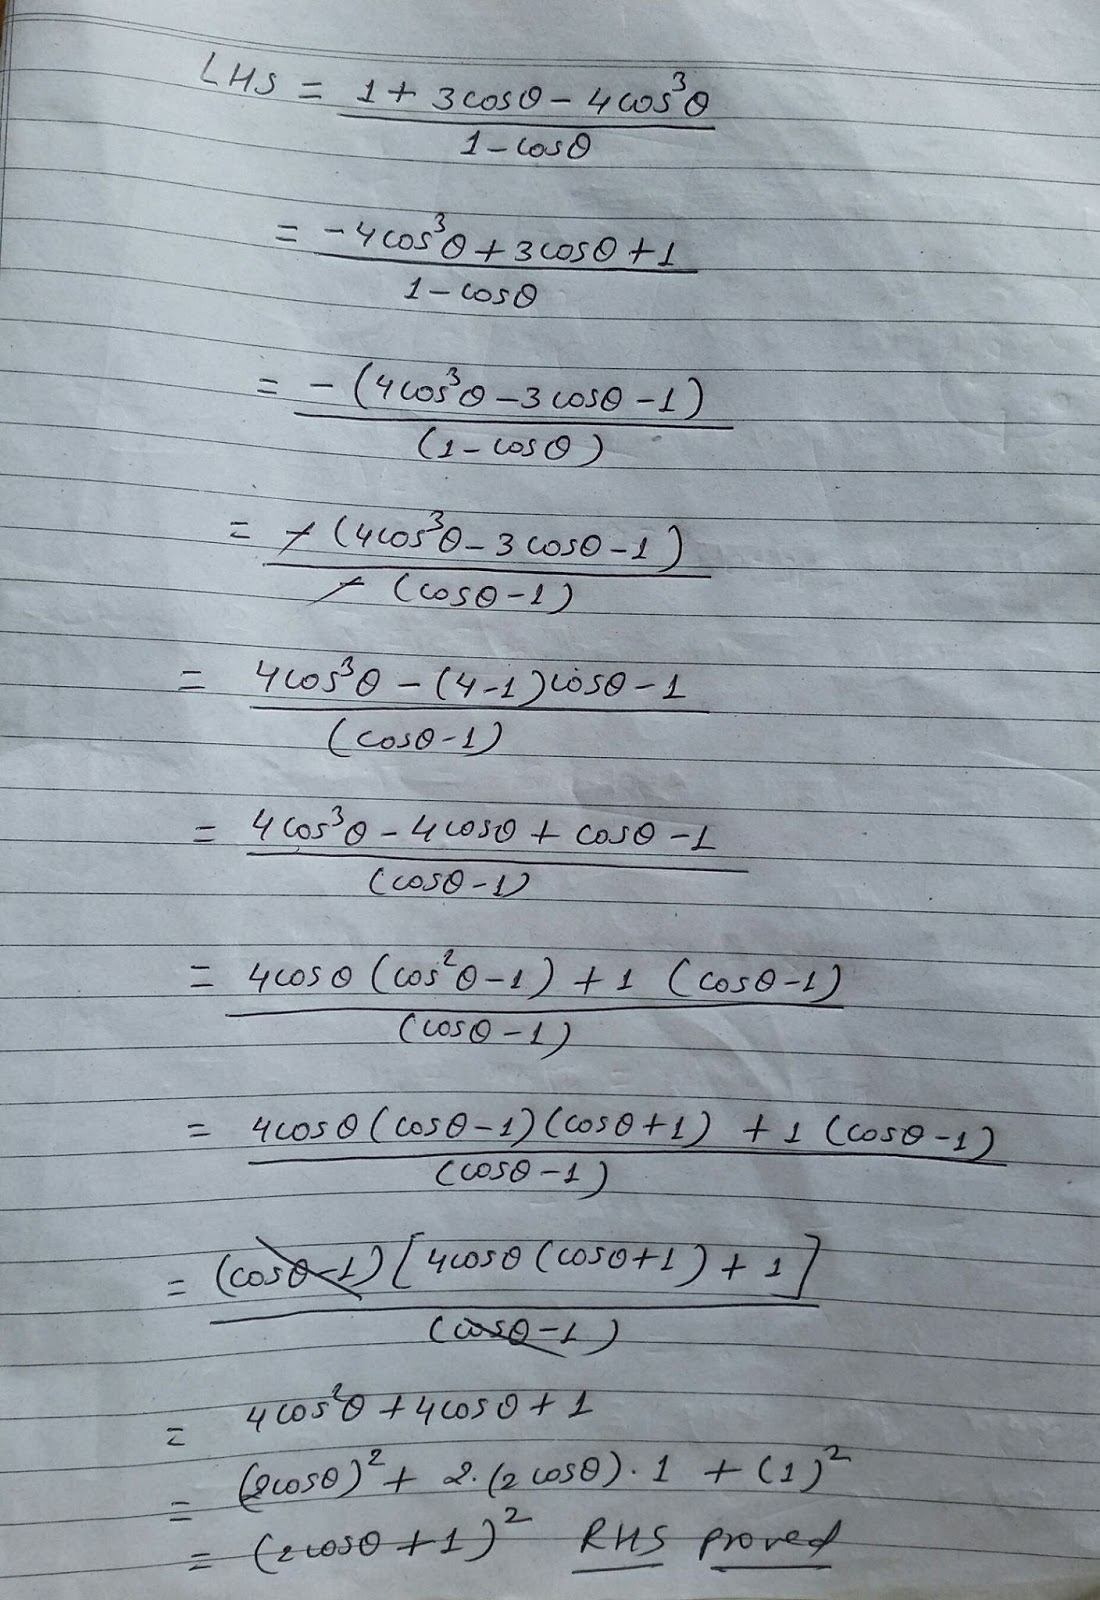 LHS = 1 + 3cosθ - 4cos³θ
1 - cosθ
= -4cos³θ + 3cosθ + 1
1 - cosθ
= -(4cos³θ - 3cosθ - 1)
(1 - cosθ)
= -(4cos³θ - 3cosθ - 1)
-(cosθ - 1)
= 4cos³θ - (4-1)cosθ - 1
(cosθ - 1)
= 4cos³θ - 4cosθ + cosθ - 1
(cosθ - 1)
= 4cosθ(cos²θ - 1) + 1 (cosθ - 1)
(cosθ - 1)
= 4cosθ(cosθ - 1)(cosθ + 1) + 1 (cosθ - 1)
(cosθ - 1)
= (cosθ - 1)[4cosθ(cosθ + 1) + 1]
(cosθ - 1)
= 4cos²θ + 4cosθ + 1
= (2cosθ)² + 2.(2cosθ).1 + (1)²
= (2cosθ + 1)² RHS proved